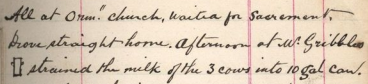 All at Orm.y church, waited for Sacrement,
Drove straight home. Afternoon at Mr Gribbles
strained the milk of the 3 cows into 10 gal can.